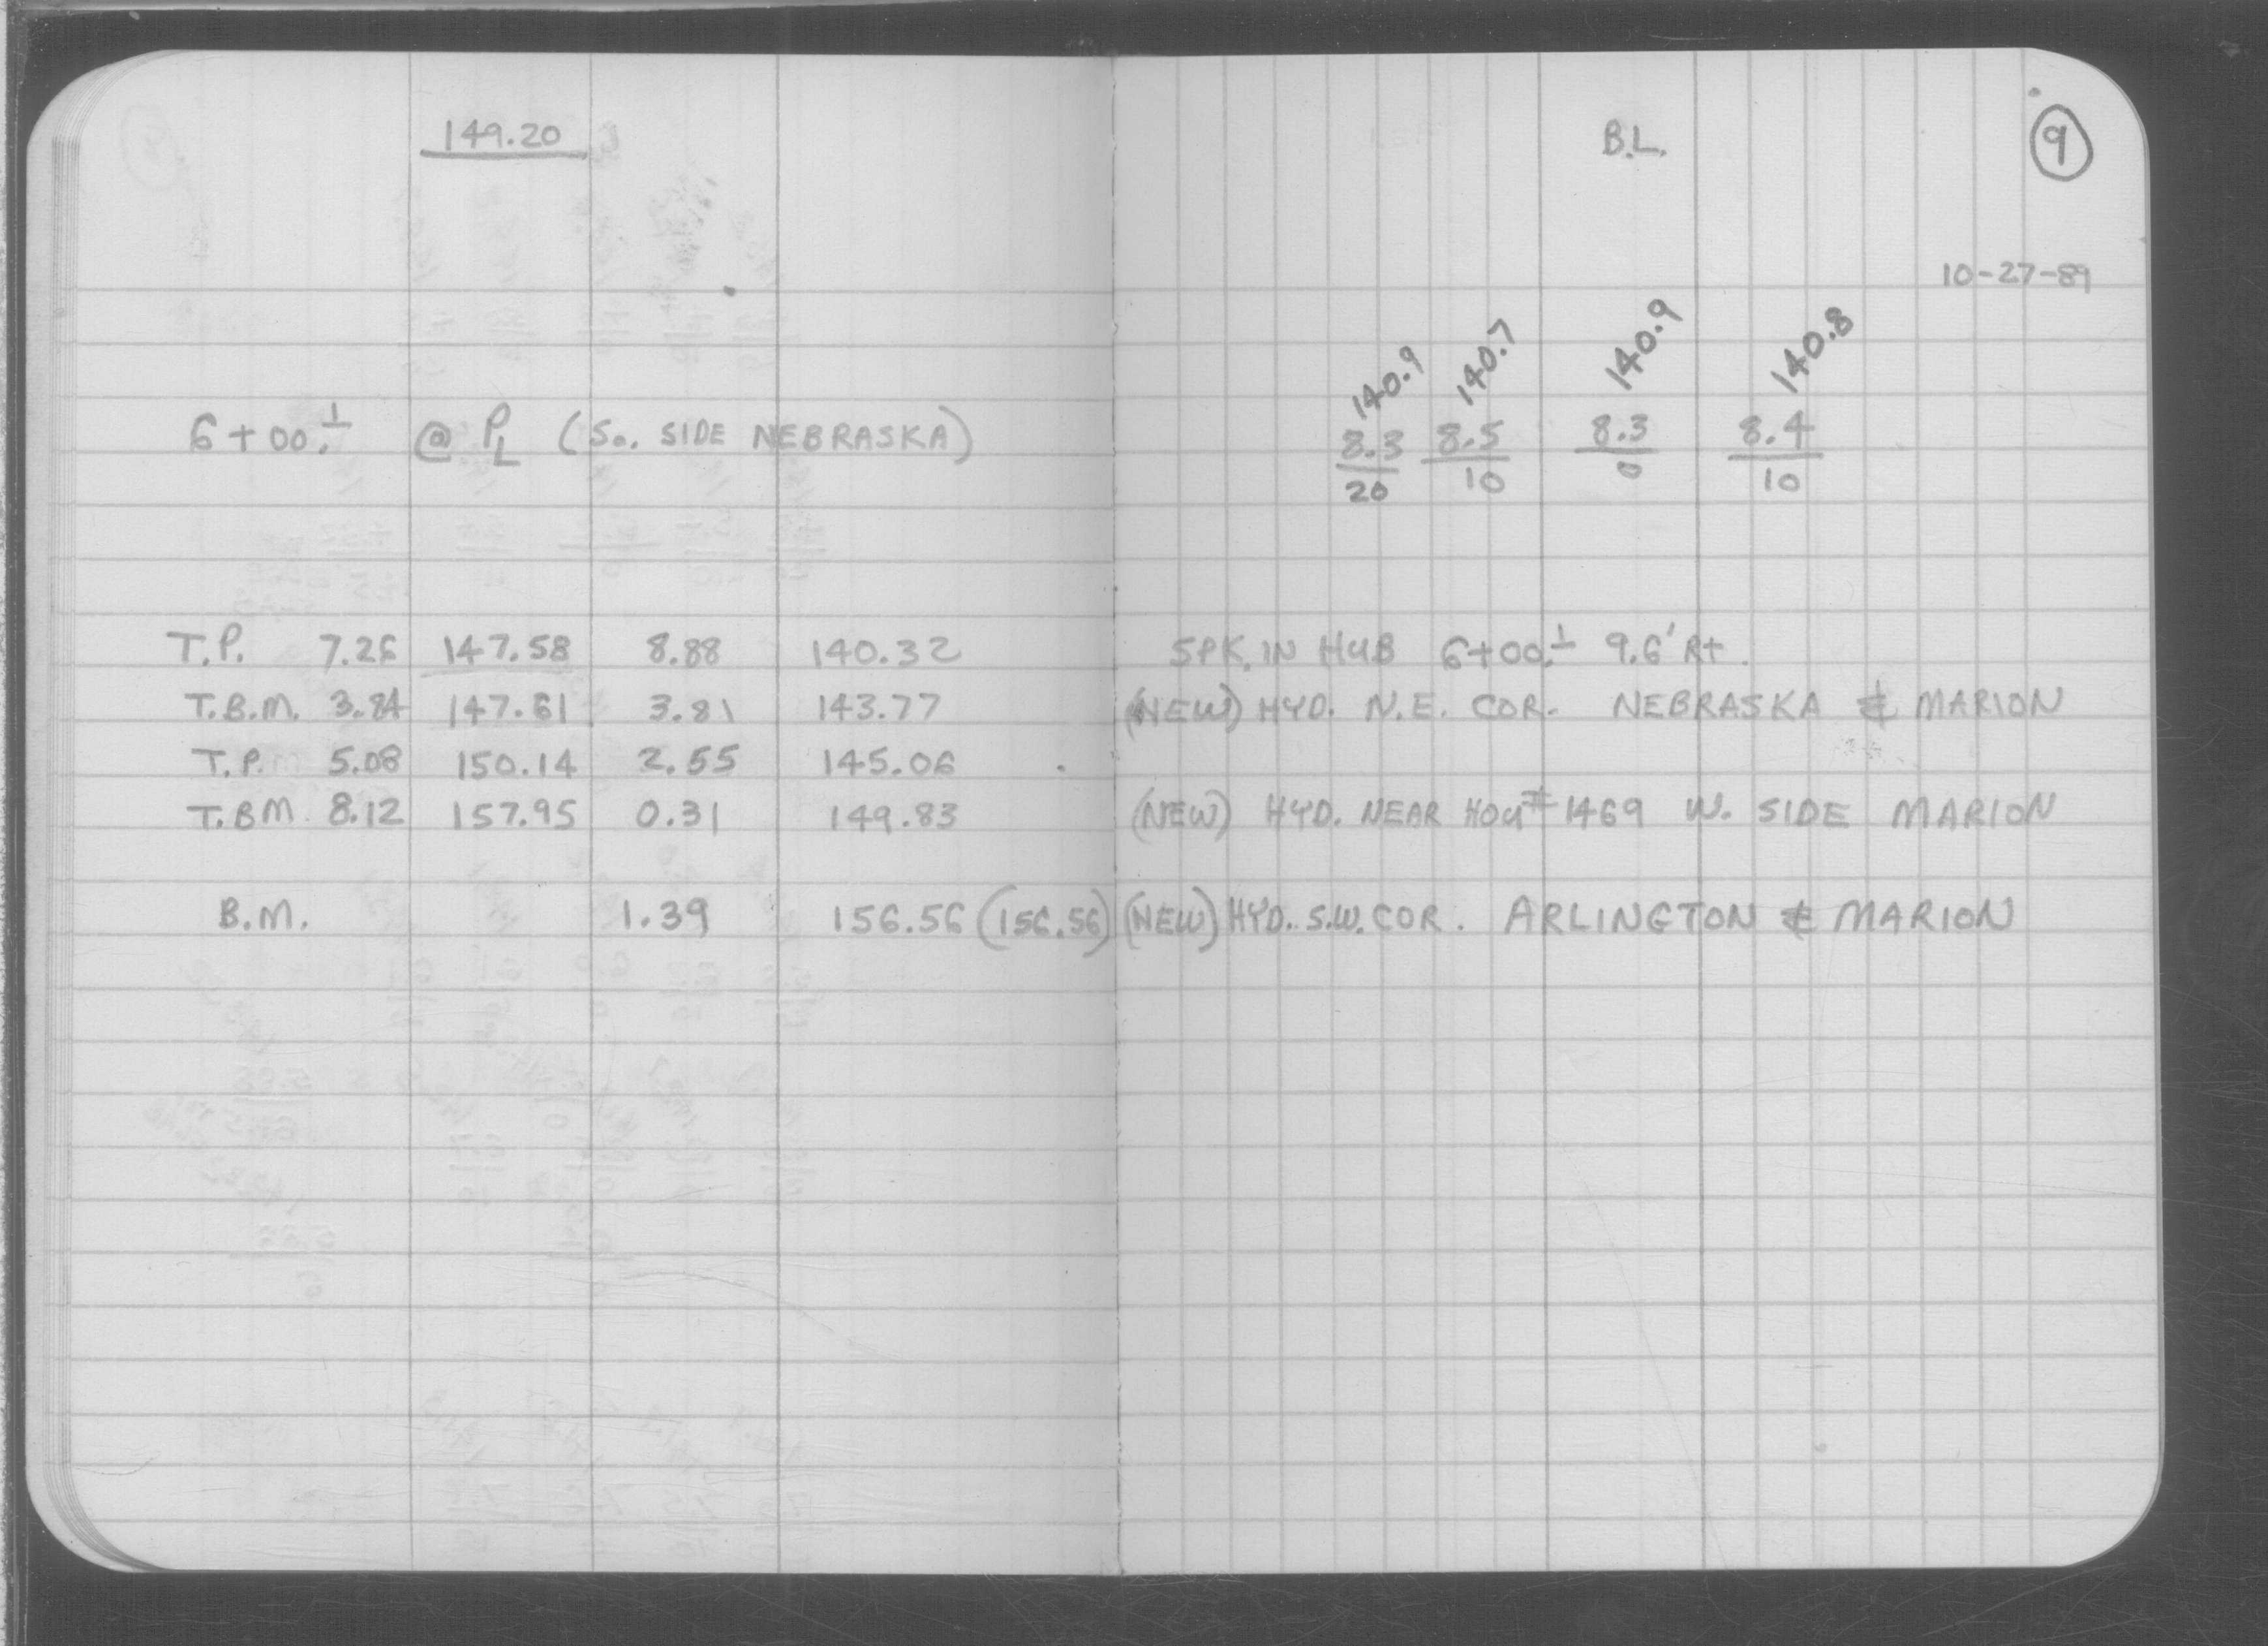 149.20
B.L.
9
10-27-89
140.9 140.7 140.9 140.8
6+00.± @ PL (So. SIDE NEBRASKA) 8.3 8.5 8.3 8.4
20 10 0 10
T.P. 7.26 147.58 8.88 140.32 SPK. IN HUB 6+00.± 9.6' Rt.
T.B.M. 3.84 147.61 3.81 143.77 (NEW) HYD. N.E. COR. NEBRASKA & MARION
T.P. 5.08 150.14 2.55 145.06
T.BM. 8.12 157.95 0.31 149.83 (NEW) HYD. NEAR HOU# 1469 W. SIDE MARION
B.M. 1.39 156.56 (156.56) (NEW) HYD. S.W. COR. ARLINGTON & MARION